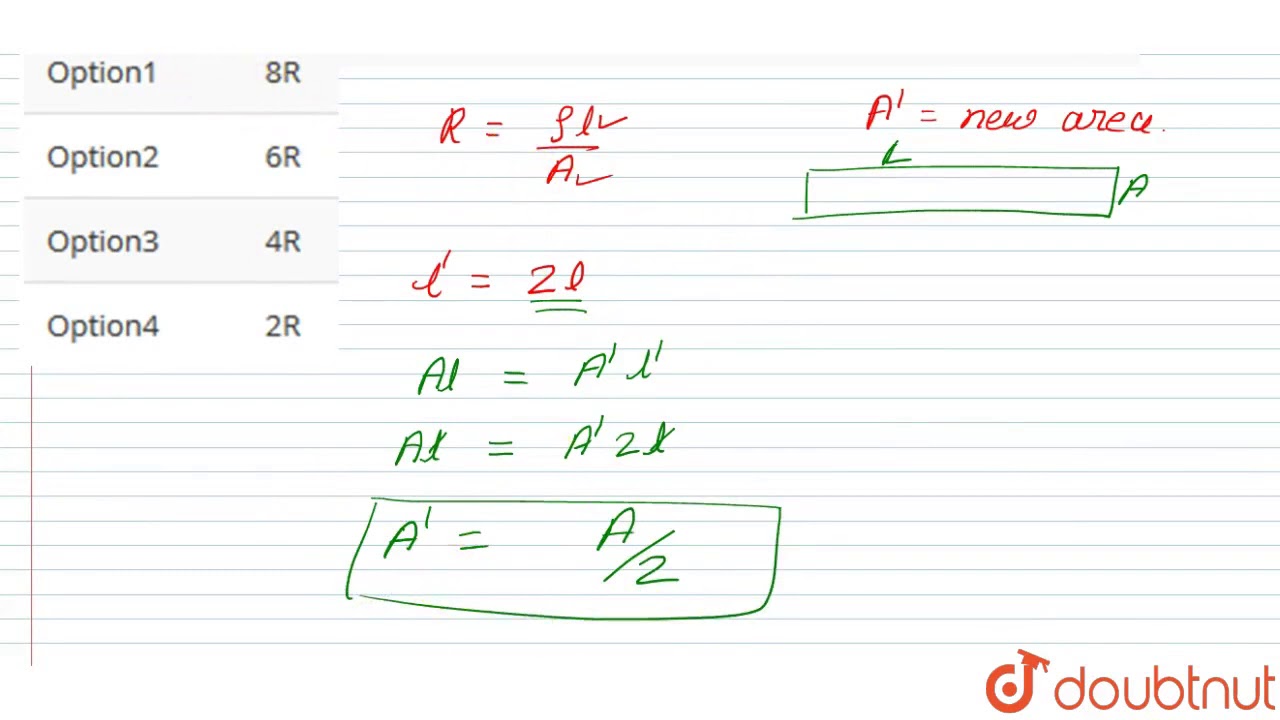 Option1 8R
Option2 6R
Option3 4R
Option4 2R
R = ρl/A
A' = new area.
L
A
l' = 2l
Al = A'l'
Al = A'2l
A' = A/2
doubtnut